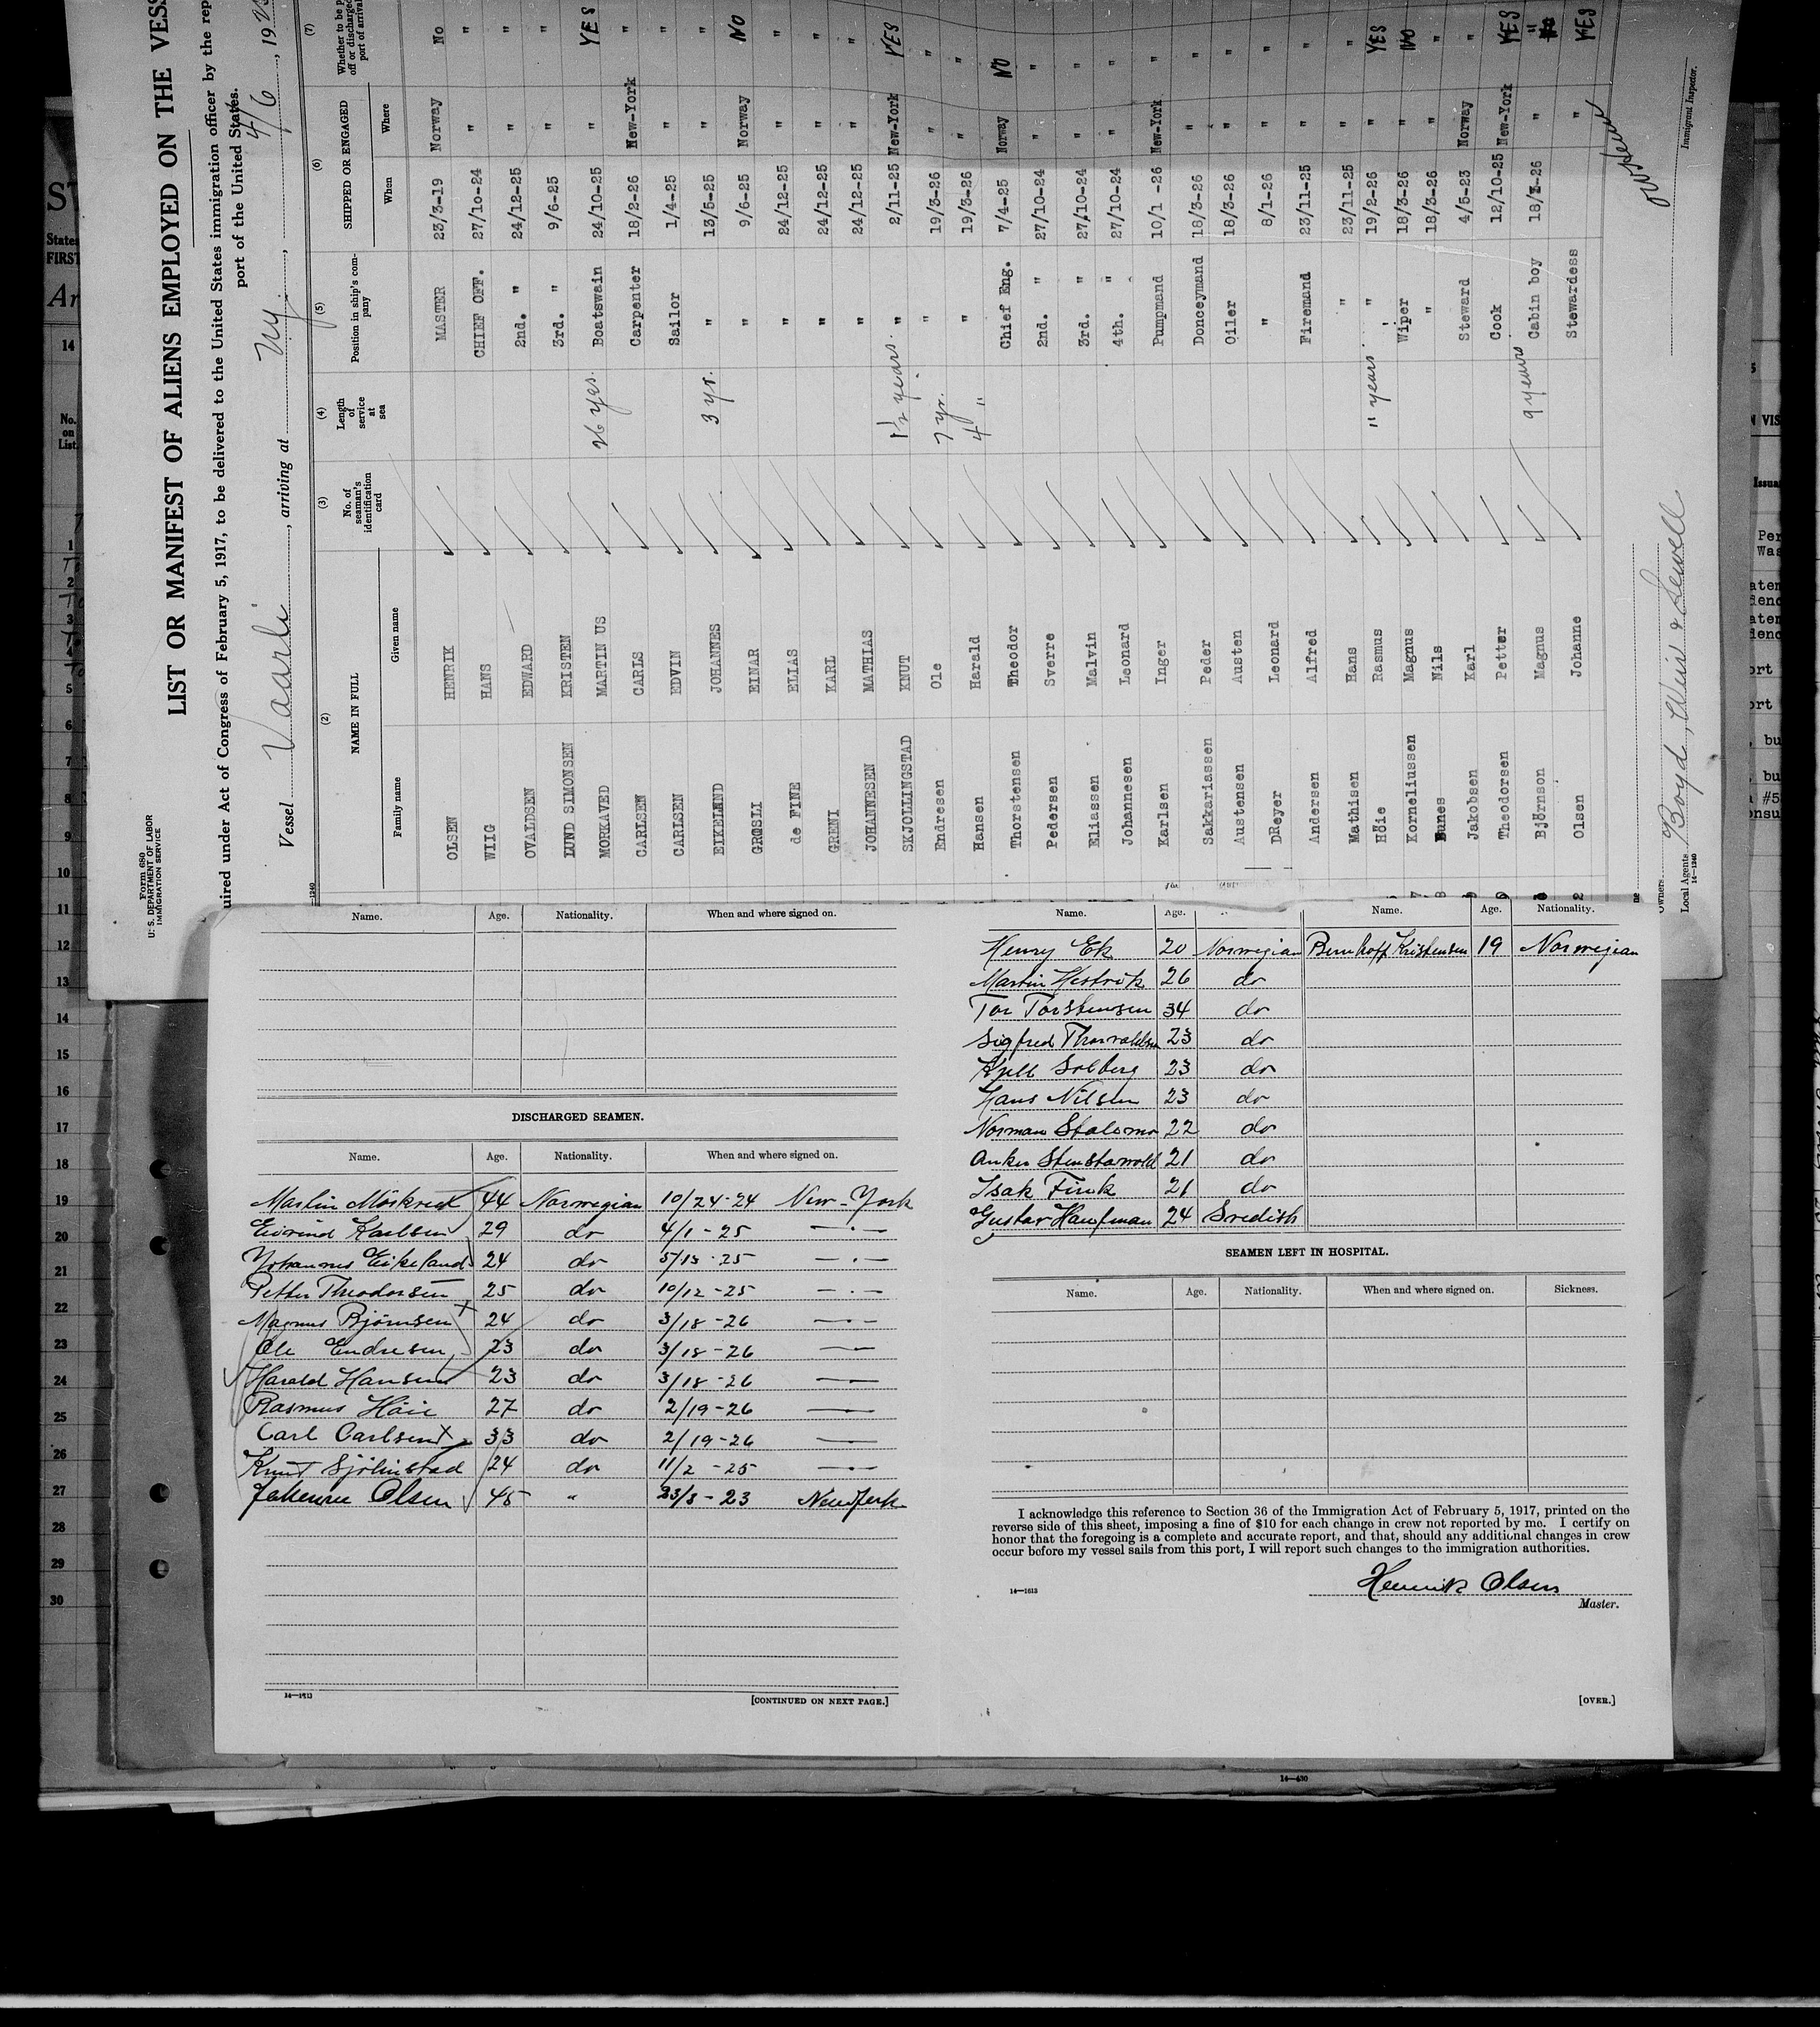 Form 680
U. S. DEPARTMENT OF LABOR
IMMIGRATION SERVICE
LIST OR MANIFEST OF ALIENS EMPLOYED ON THE VESS
uired under Act of Congress of February 5, 1917, to be delivered to the United States immigration officer by the rep
port of the United States.
Vessel Vaarli, arriving at Ny., 4/6, 19
(2) (3) (4) (5) (6) (7)
NAME IN FULL No. of seaman's identification card Length of service at sea Position in ship's company SHIPPED OR ENGAGED Whether to be p off or discharged port of arrival
Family name Given name When Where
OLSEN HENRIK MASTER 23/3-19 Norway No
WIIG HANS CHIEF OFF. 27/10-24 " "
OVALDSEN EDWARD 2nd. " 24/12-25 " "
LUND SIMONSEN KRISTEN 3rd. " 9/6-25 " "
MORKAVED MARTIN US 26 yrs. Boatswain 24/10-25 " YES
CARLSEN CARLS Carpenter 18/2-26 New-York "
CARLSEN EDVIN Sailor 1/4-25 " "
EIKELAND JOHANNES 3 yr. " 13/5-25 " "
GROSLI EINAR " 9/6-25 Norway NO
de FINE ELIAS " 24/12-25 " "
GRENI KARL " 24/12-25 " "
JOHANNESEN MATHIAS " 24/12-25 " "
SKJOLLINGSTAD KNUT 1½ years. " 2/11-25 New-York YES
Endresen Ole 7 yr. " 19/3-26 " "
Hansen Harald 4 " " 19/3-26 " "
Thorstensen Theodor Chief Eng. 7/4-25 Norway NO
Pedersen Sverre 2nd. " 27/10-24 " "
Eliassen Malvin 3rd. " 27/10-24 " "
Johannesen Leonard 4th. " 27/10-24 " "
Karlsen Inger Pumpmand 10/1 -26 New-York "
Sakkariassen Peder Donceymand 18/3-26 " "
Austensen Austen Oiler 18/3-26 " "
DReyer Leonard " 8/1-26 " "
Andersen Alfred Firemand 23/11-25 " "
Mathisen Hans " 23/11-25 " "
Höie Rasmus 11 years " 19/2-26 " YES
Korneliussen Magnus Wiper 18/3-26 " NO
Bunes Nils " 18/3-26 " "
Jakobsen Karl Steward 4/5-23 Norway "
Theodorsen Petter Cook 12/10-25 New-York YES
Björnson Magnus 9 years Cabin boy 18/3-26 " "
Olsen Johanne Stewardess " YES
Immigrant Inspector.
Owners
Local Agents Boyd, Weir & Sewell
14—1240
Name. Age. Nationality. When and where signed on.
DISCHARGED SEAMEN.
Name. Age. Nationality. When and where signed on.
Martin Möskved 44 Norwegian 10/24-24 New-York
Eivind Karlsen 29 do 4/1-25 — · —
Johannes Eikeland 24 do 5/13-25 — · —
Petter Theodorsen 25 do 10/12-25 — · —
Magnus Björnsen 24 do 3/18-26 — · —
Ole Endresen 23 do 3/18-26 —
Harald Hansen 23 do 3/18-26 —
Rasmus Höie 27 do 2/19-26 —
Carl Carlsen 33 do 2/19-26 —
Knut Sjölinstad 24 do 11/2-25 — · —
Johanne Olsen 45 " 23/3-23 New York
14—1613
[CONTINUED ON NEXT PAGE.]
Name. Age. Name. Age. Nationality.
Henry Ek 20 Norwegian Bernhoff Kristensen 19 Norwegian
Martin Hestvik 26 do
Tor Torstensen 34 do
Sigfred Thorvaldsen 23 do
Kjell Solberg 23 do
Hans Nilsen 23 do
Norman 22 do
Anker 21 do
Isak Fink 21 do
Gustav Haufman 24 Sredish
SEAMEN LEFT IN HOSPITAL.
Name. Age. Nationality. When and where signed on. Sickness.
I acknowledge this reference to Section 36 of the Immigration Act of February 5, 1917, printed on the
reverse side of this sheet, imposing a fine of $10 for each change in crew not reported by me. I certify on
honor that the foregoing is a complete and accurate report, and that, should any additional changes in crew
occur before my vessel sails from this port, I will report such changes to the immigration authorities.
Henrik Olsen
14—1613
Master.
[OVER.]
14—430
States
FIRST
14
No. on List
1
2
3
4
5
6
7
8
9
10
11
12
13
14
15
16
17
18
19
20
21
22
23
24
25
26
27
28
29
30